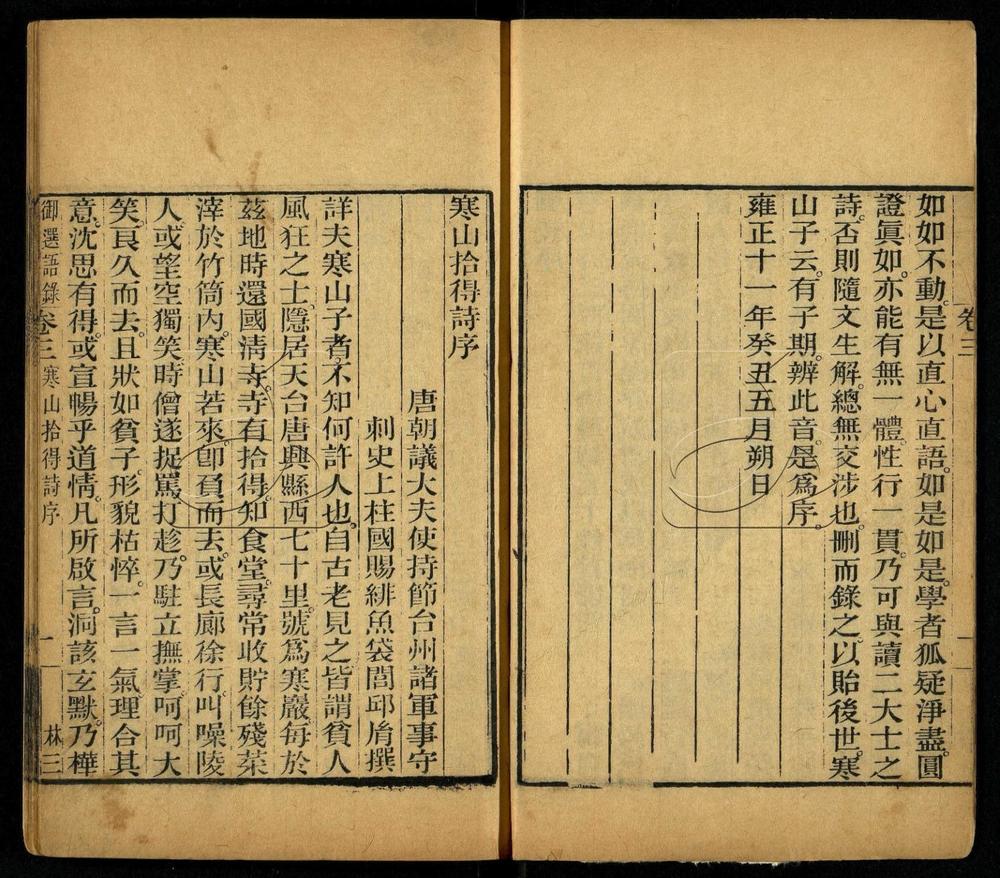 卷三
一
如如不動。是以直心直語。如是如是。學者狐疑淨盡。圓
證眞如。亦能有無一體。性行一貫。乃可與讀二大士之
詩。否則隨文生解。總無交涉也。刪而錄之。以貽後世。寒
山子云。有子期。辨此音。是爲序。
雍正十一年癸丑五月朔日
寒山拾得詩序
唐朝議大夫使持節台州諸軍事守
刺史上柱國賜緋魚袋閭邱𦙍撰
詳夫寒山子者。不知何許人也。自古老見之。皆謂貧人
風狂之士。隱居天台唐興縣西七十里。號爲寒巖。每於
茲地時還國清寺。寺有拾得。知食堂。尋常收貯餘殘菜
滓於竹筒內。寒山若來。卽負而去。或長廊徐行。叫噪陵
人。或望空獨笑。時僧遂捉罵打趁。乃駐立撫掌。呵呵大
笑。良久而去。且狀如貧子。形貌枯悴。一言一氣。理合其
意。沈思有得。或宣暢乎道情。凡所啟言。洞該玄默。乃樺
御選語錄卷三寒山拾得詩序
一
林三